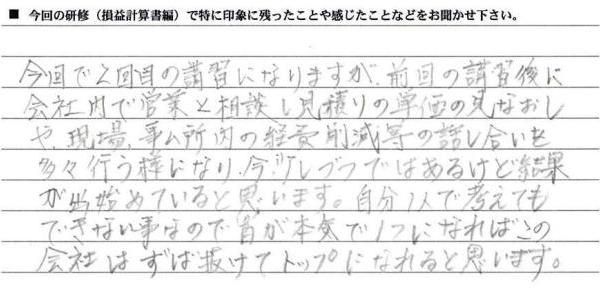 ■ 今回の研修（損益計算書編）で特に印象に残ったことや感じたことなどをお聞かせ下さい。
今回で2回目の講習になりますが、前回の講習後に
会社内で営業と相談し見積りの単価の見なおし
や、現場、事ム所内の経費削減等の話し合いを
多々行う様になり、今、少しづつではあるけど結果
が出始めていると思います。自分1人で考えても
できない事なので皆が本気で1つになればこの
会社はずば抜けてトップになれると思います。